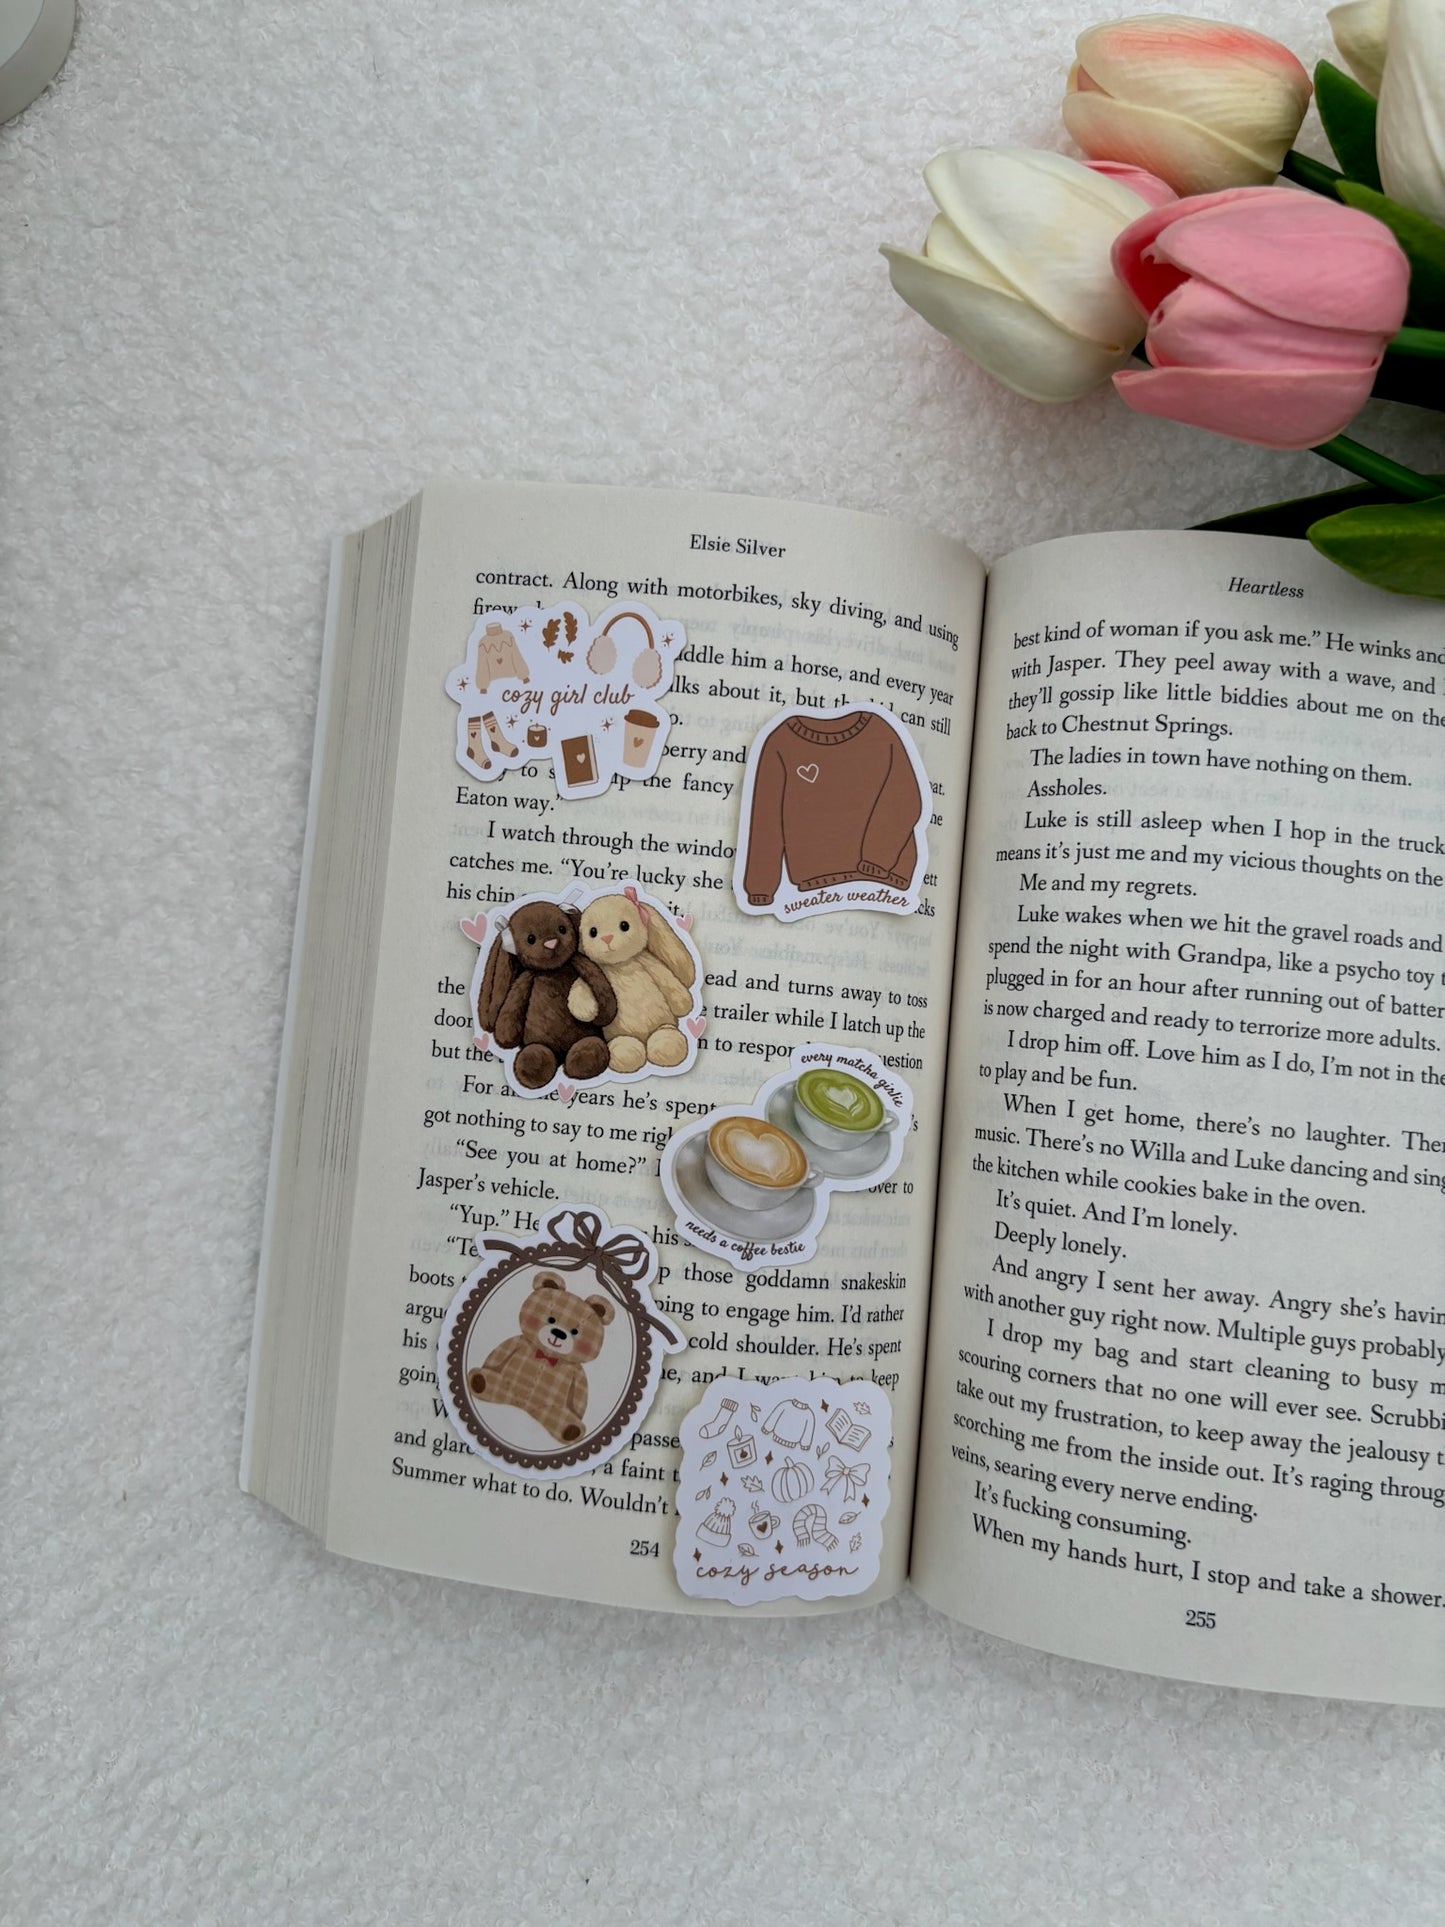 Elsie Silver
contract. Along with motorbikes, sky diving, and using
addle him a horse, and every year
talks about it, but the kid can still
cozy girl club
berry and
to the fancy
Eaton way.”
I watch through the window
catches me. “You’re lucky she
his chin it.
sweater weather
the ead and turns away to toss
door trailer while I latch up the
but the to respond question
For all the years he’s spent
got nothing to say to me
every matcha girlie
needs a coffee bestie
“See you at home?”
Jasper’s vehicle. over to
“Yup.” He his
those goddamn snakeskin
boots
ping to engage him. I’d rather
cold shoulder. He’s spent
his
and I want him to keep
going
and passe
a faint
Summer what to do. Wouldn’t
cozy season
254
Heartless
best kind of woman if you ask me.” He winks and
with Jasper. They peel away with a wave, and
they’ll gossip like little biddies about me on the
back to Chestnut Springs.
The ladies in town have nothing on them.
Assholes.
Luke is still asleep when I hop in the truck
means it’s just me and my vicious thoughts on the
Me and my regrets.
Luke wakes when we hit the gravel roads and
spend the night with Grandpa, like a psycho toy
plugged in for an hour after running out of batter
is now charged and ready to terrorize more adults.
I drop him off. Love him as I do, I’m not in the
to play and be fun.
When I get home, there’s no laughter. Ther
music. There’s no Willa and Luke dancing and sing
the kitchen while cookies bake in the oven.
It’s quiet. And I’m lonely.
Deeply lonely.
And angry I sent her away. Angry she’s havin
with another guy right now. Multiple guys probably
I drop my bag and start cleaning to busy m
scouring corners that no one will ever see. Scrubbi
take out my frustration, to keep away the jealousy t
scorching me from the inside out. It’s raging throug
veins, searing every nerve ending.
It’s fucking consuming.
When my hands hurt, I stop and take a shower.
255